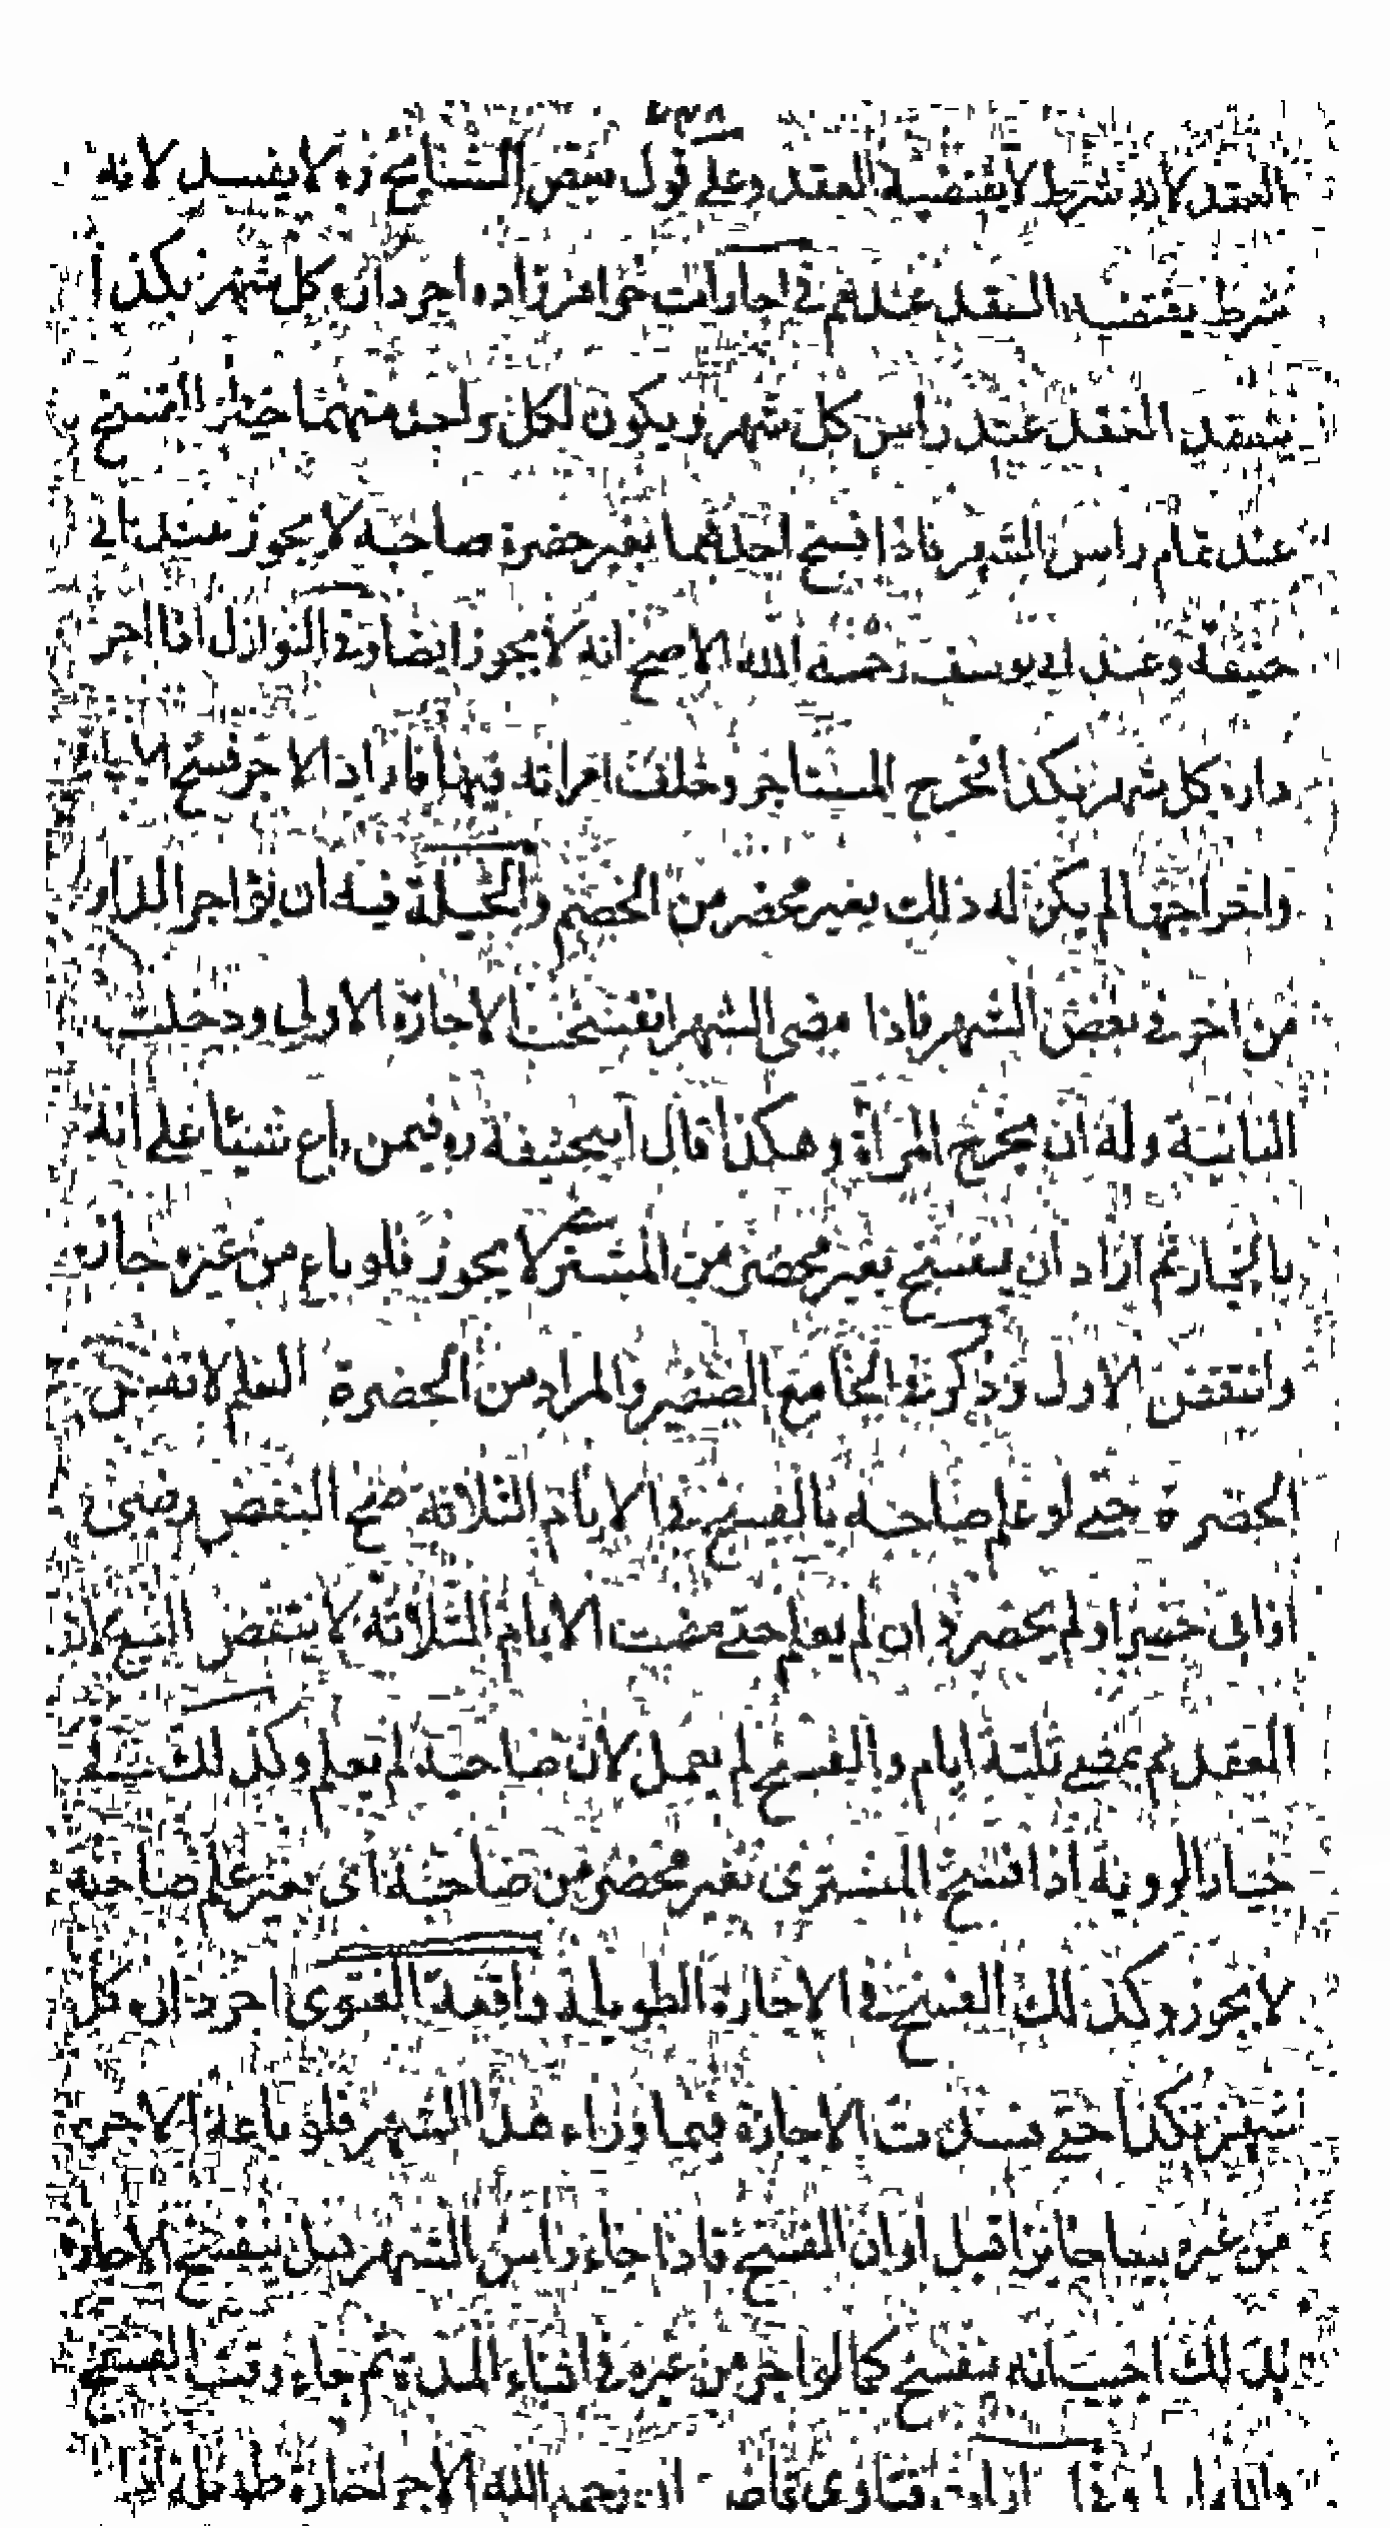 العقد لانه شرط لا يقتضيه العقد وعلى قول بعض المشايخ ره لا يفسد لانه
شرط يقتضيه العقد عندهم في اجارات خواهرزاده اجر داره كل شهر بكذا
ينعقد العقد عند راس كل شهر ويكون لكل واحد منهما خيار الفسخ
عند تمام راس الشهر فاذا فسخ احدهما بغير حضرة صاحبه لا يجوز عند ابي
حنيفة وعند ابي يوسف رحمه الله الاصح انه لا يجوز ايضا وفي النوازل اذا اجر
داره كل شهر بكذا فخرج المستاجر وخلف امراته فيها فاراد الاجر فسخ الاجارة
واخراجها لم يكن له ذلك بغير محضر من الخصم والحيلة فيه ان يؤاجر الدار
من اخر في بعض الشهر فاذا مضى الشهر انفسخت الاجارة الاولى ودخلت
الثانية وله ان يخرج المراة وهكذا قال ابيحنيفة ره فيمن باع شيئا على انه
بالخيار ثم اراد ان يفسخ بغير محضر من المشتري لا يجوز فلو باع من غيره جاز
وانتقض الاول وذكر في الجامع الصغير والمراد من الحضرة العلم لا نفس
الحضرة حتى لو علم صاحبه بالفسخ في الايام الثلاثة صح النقض رضى
او ابى حضر او لم يحضر وان لم يعلم حتى مضت الايام الثلاثة لا ينتقض البيع لان
العقد تم بمضي ثلثة ايام والفسخ لم يعمل لان صاحبه لم يعلم وكذلك في
خيار الروية اذا فسخ المشترى بغير محضر من صاحبه اى بغير علم صاحبه
لا يجوز وكذلك الفسخ في الاجارة الطويلة واقعة الفتوى اجر داره كل
شهر بكذا حتى فسدت الاجارة فيما وراء هذا الشهر فلو باعها الاجر
من غيره بيعا جائزا قبل اوان الفسخ فاذا جاء راس الشهر هل ينفسخ الاجارة
بذلك اجبت انه ينفسخ كما لو اجر من غيره في اثناء المدة ثم جاء وقت الفسخ
فتاوى قاضى رحمه الله الاجر